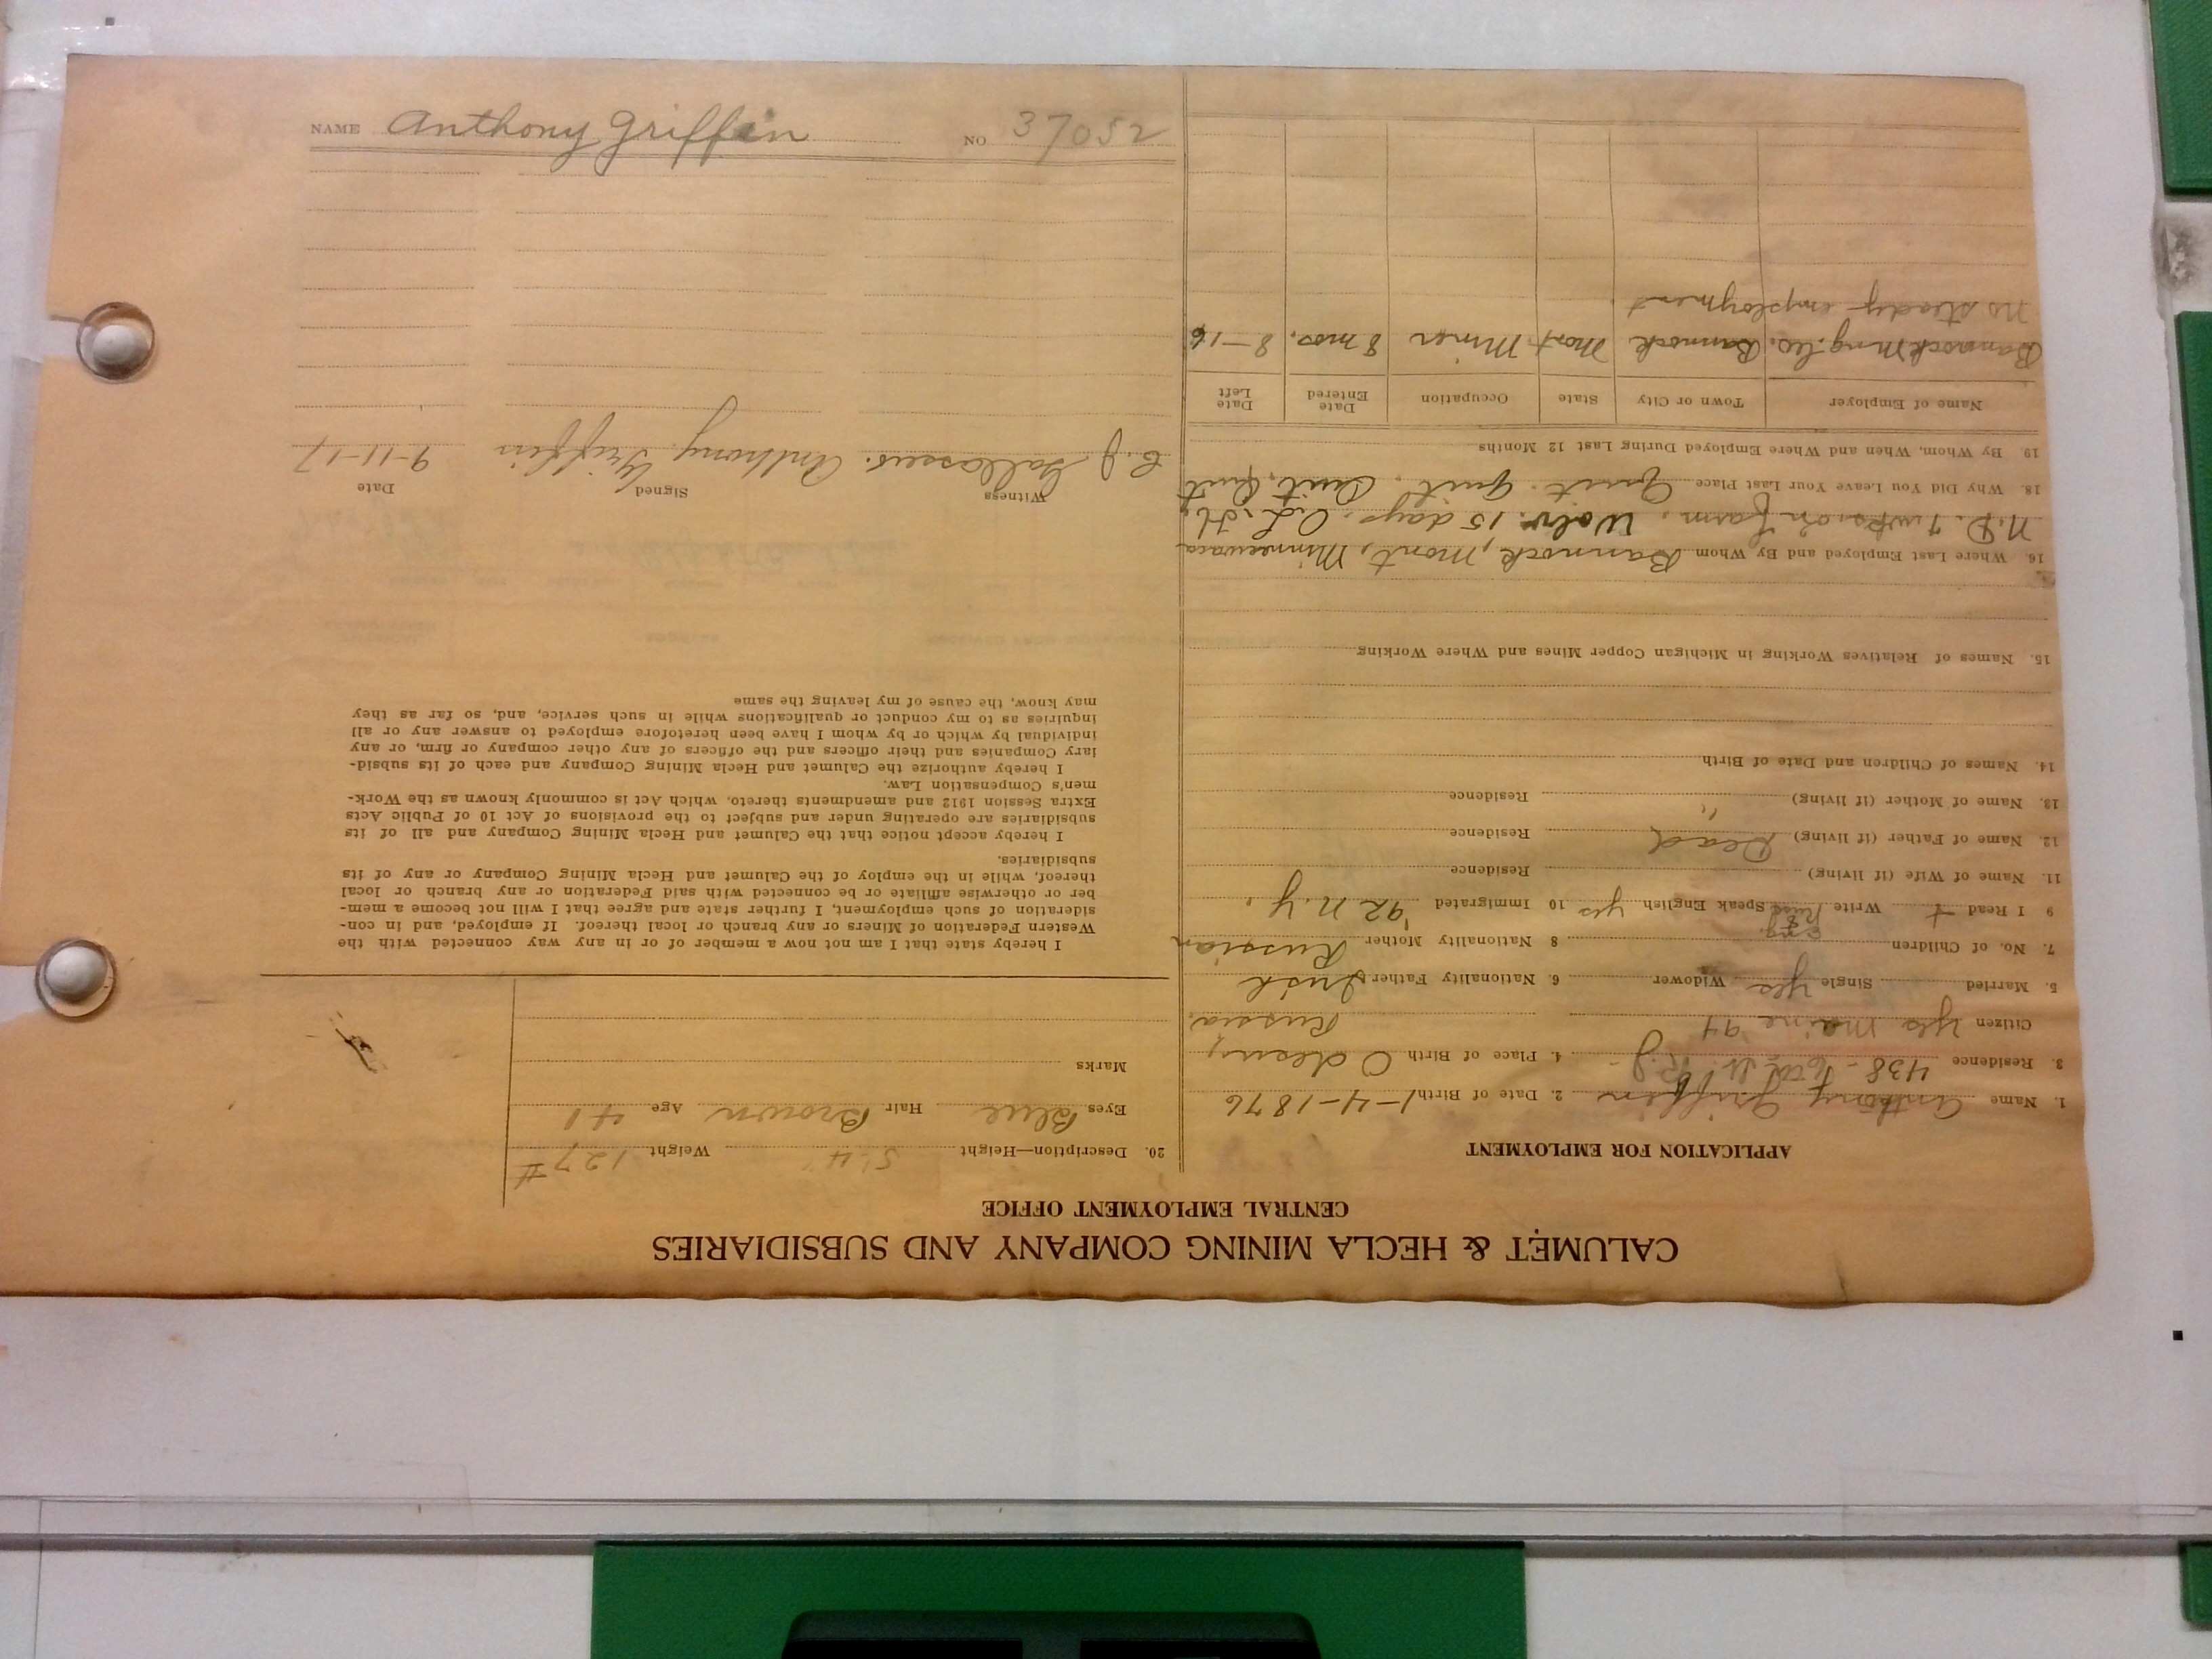 CALUMET & HECLA MINING COMPANY AND SUBSIDIARIES
CENTRAL EMPLOYMENT OFFICE
APPLICATION FOR EMPLOYMENT
1. Name Anthony Griffin 2. Date of Birth 1-4-1876
3. Residence 438- St. 4. Place of Birth Odessa,
Citizen yes Maine 94 Russia.
5. Married Single yes Widower 6. Nationality Father Irish
7. No. of Children 8 Nationality Mother Russian
Eng. &
9 I Read + Write Russ Speak English yes 10 Immigrated '92 N.Y.
11. Name of Wife (if living) Residence
12. Name of Father (if living) Dead Residence
13. Name of Mother (if living) " Residence
14. Names of Children and Date of Birth
15. Names of Relatives Working in Michigan Copper Mines and Where Working
16. Where Last Employed and By Whom Bannock, Mont, Minnewaca
N.D. 7 wks. on farm. Wolv. 15 days.
18. Why Did You Leave Your Last Place Quit. Quit. Quit, Quit
19. By Whom, When and Where Employed During Last 12 Months
Name of Employer Town or City State Occupation Date Entered Date Left
Bannock Mng. Co. Bannock Mont. Miner 8 mos. 8-16
No steady employment.
20. Description—Height 5'-4" Weight 127#
Eyes Blue Hair Brown Age 41
Marks
I hereby state that I am not now a member of or in any way connected with the
Western Federation of Miners or any branch or local thereof. If employed, and in con-
sideration of such employment, I further state and agree that I will not become a mem-
ber or otherwise affiliate or be connected with said Federation or any branch or local
thereof, while in the employ of the Calumet and Hecla Mining Company or any of its
subsidiaries.
I hereby accept notice that the Calumet and Hecla Mining Company and all of its
subsidiaries are operating under and subject to the provisions of Act 10 of Public Acts
Extra Session 1912 and amendments thereto, which Act is commonly known as the Work-
men's Compensation Law.
I hereby authorize the Calumet and Hecla Mining Company and each of its subsid-
iary Companies and their officers and the officers of any other company or firm, or any
individual by which or by whom I have been heretofore employed to answer any or all
inquiries as to my conduct or qualifications while in such service, and, so far as they
may know, the cause of my leaving the same
Witness Signed Date
C. J. Anthony Griffin 9-11-17
NAME Anthony Griffin NO 37052